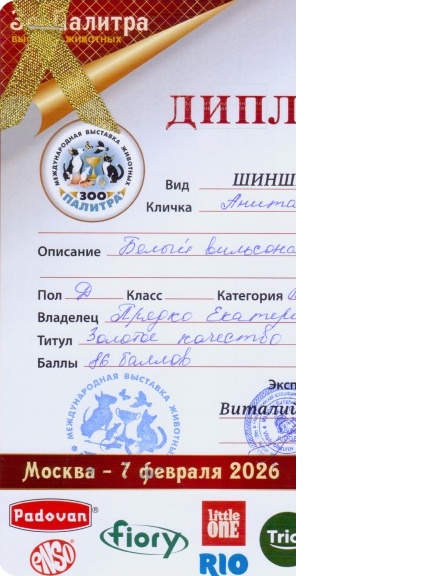 Палитра
ДИПЛ
МЕЖДУНАРОДНАЯ ВЫСТАВКА ЖИВОТНЫХ
ЗОО
ПАЛИТРА
Вид ШИНШ
Кличка Анита
Описание Белый вильсона
Пол Д Класс Категория
Владелец Прядко Екатери
Титул Золотое качество
Баллы 86 баллов
МЕЖДУНАРОДНАЯ ВЫСТАВКА ЖИВОТНЫХ
Эксп
Виталий
Москва - 7 февраля 2026
Padovan®
fiory
little
ONE
Trio
ENSO
RIO